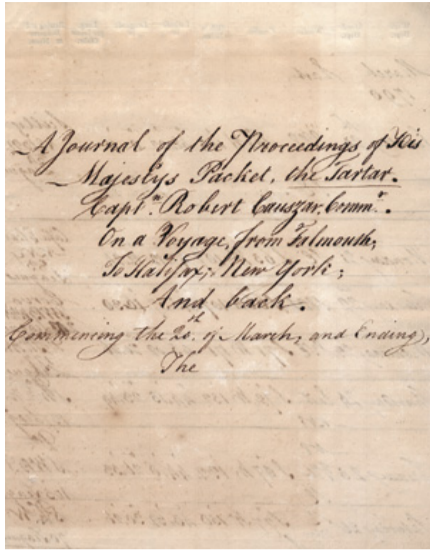 A Journal of the Proceedings of His
Majestys Packet, the Tartar.
Capt.n Robert Causzar, Comm.r
On a Voyage, from Falmouth;
To Halifax; New York;
And back.
Commencing the 20.th of March, and Ending,
The